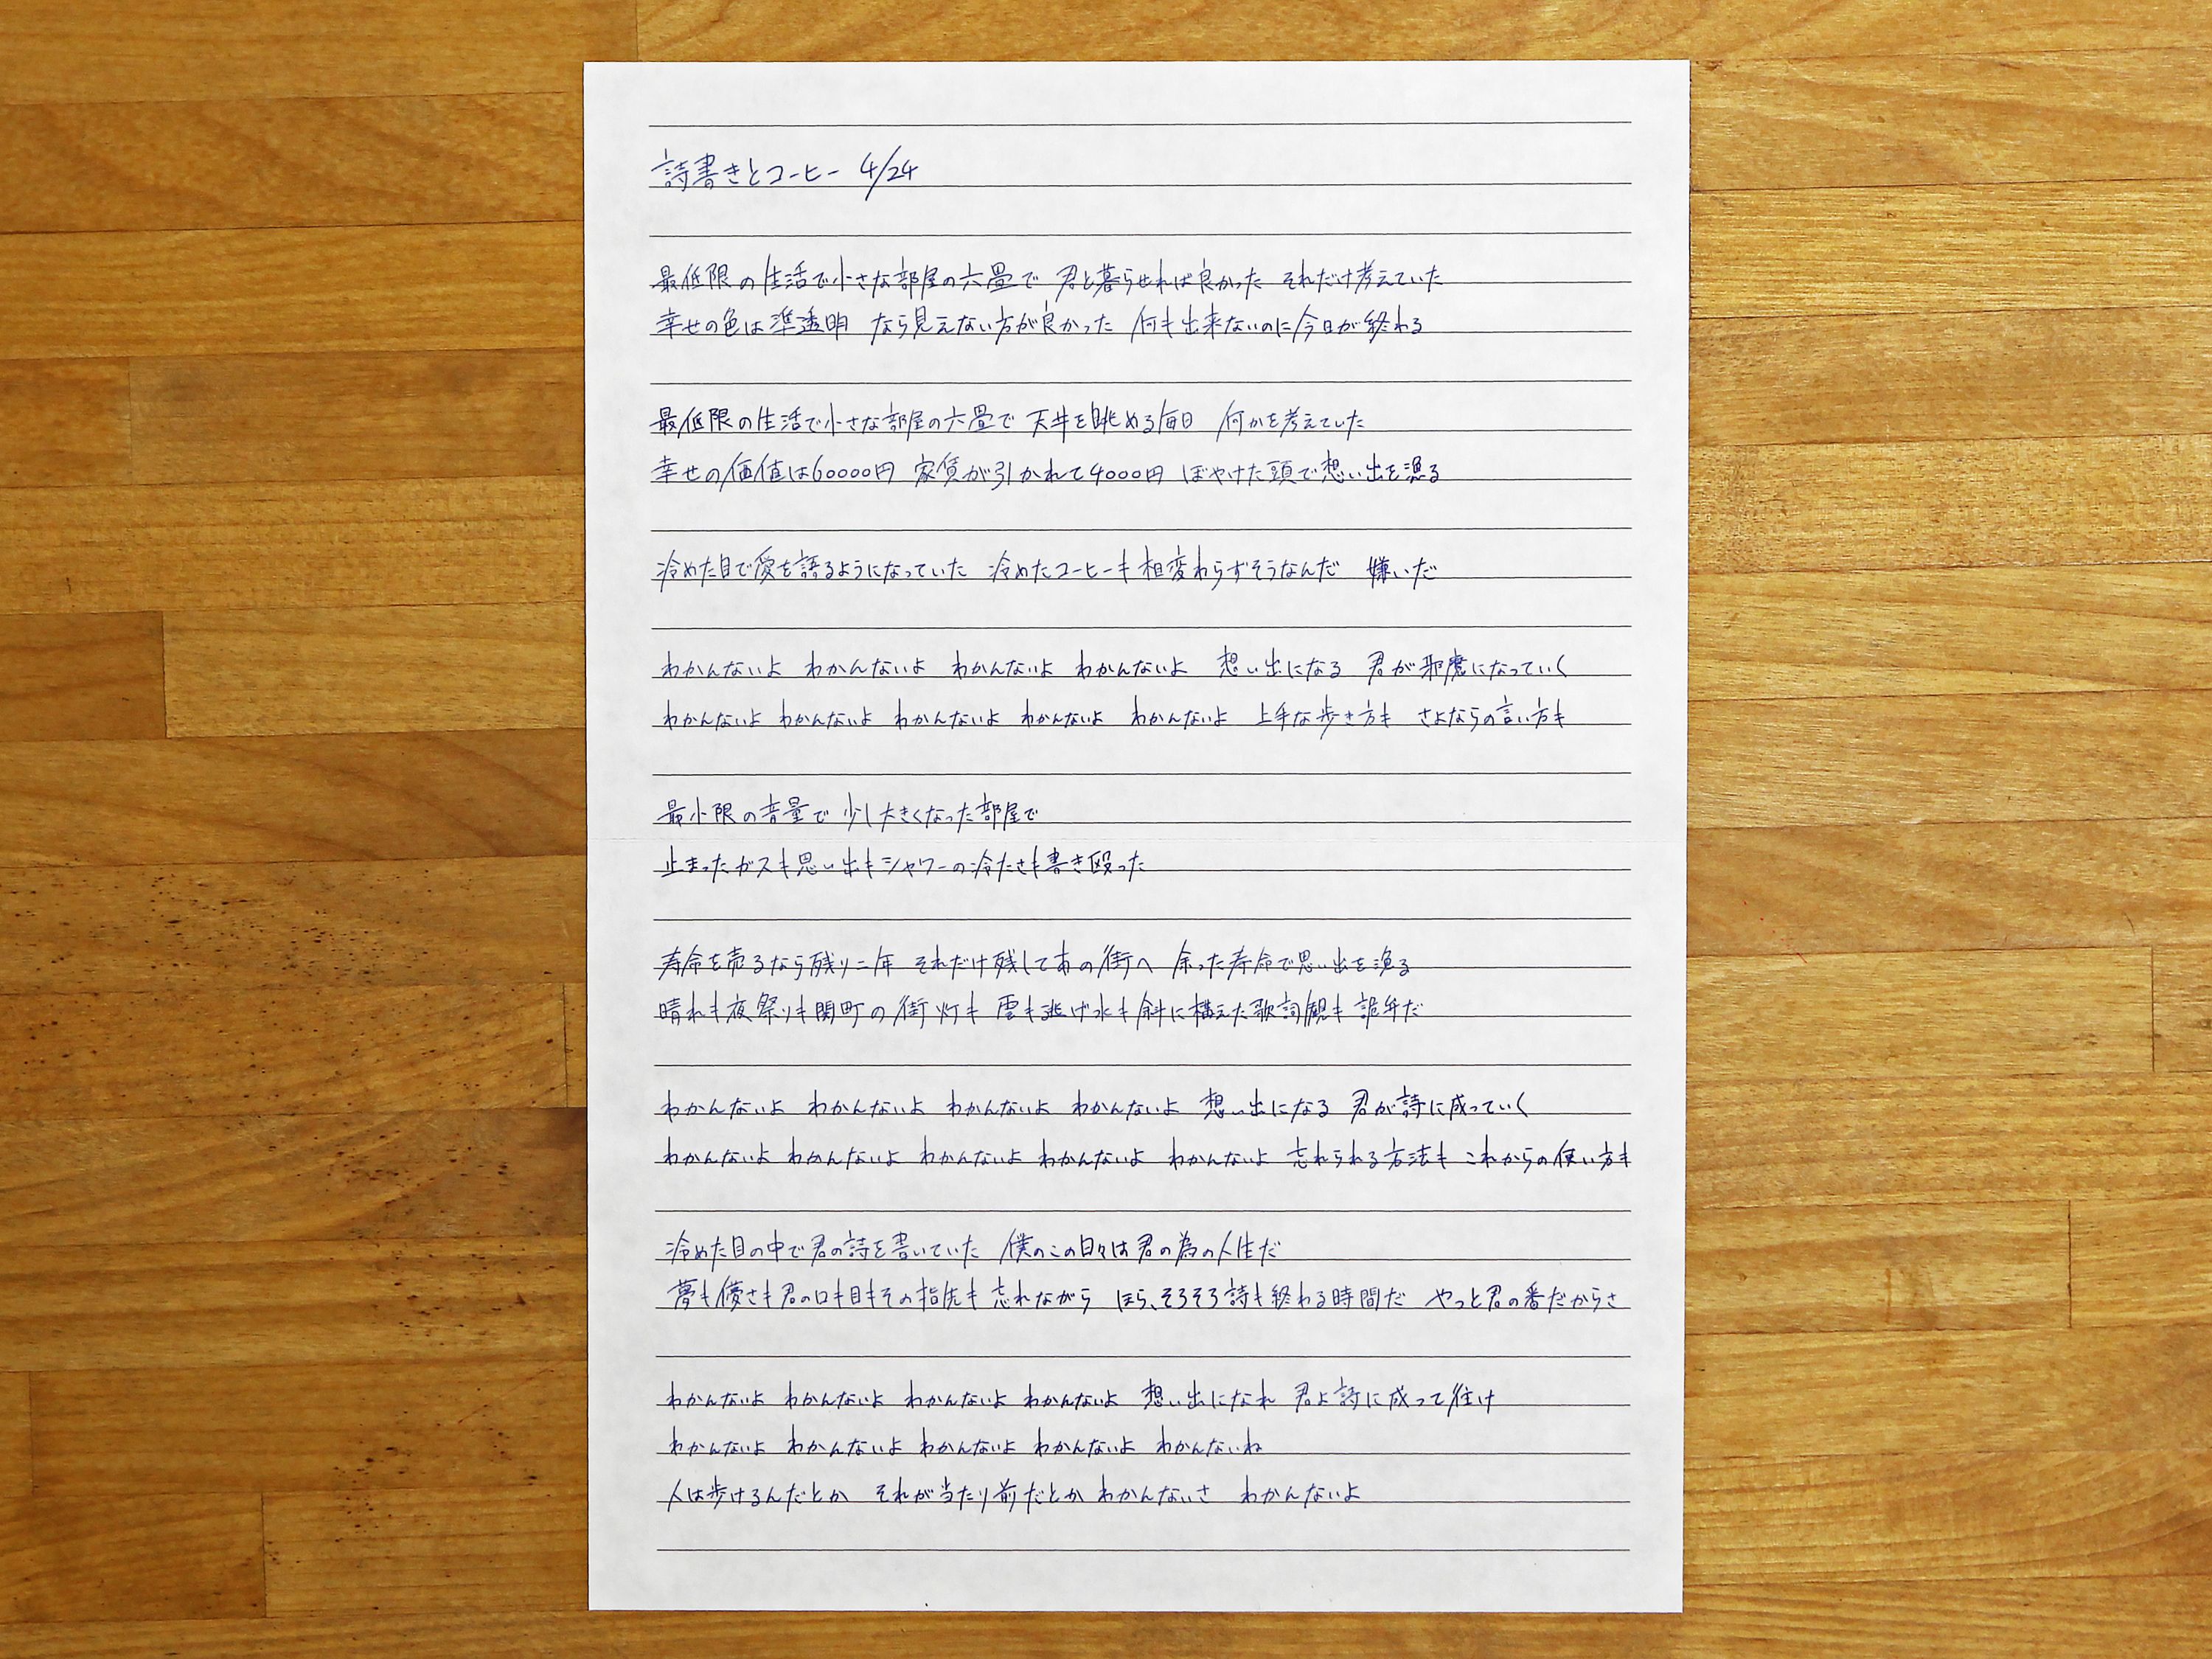 詩書きとコーヒー 4/24
最低限の生活で小さな部屋の六畳で 君と暮らせれば良かった それだけ考えていた
幸せの色は準透明 なら見えない方が良かった 何も出来ないのに今日が終わる
最低限の生活で小さな部屋の六畳で 天井を眺める毎日 何かを考えていた
幸せの価値は60000円 家賃が引かれて4000円 ぼやけた頭で想い出を漁る
冷めた目で愛を語るようになっていた 冷めたコーヒーも相変わらずそうなんだ 嫌いだ
わかんないよ わかんないよ わかんないよ わかんないよ 想い出になる 君が邪魔になっていく
わかんないよ わかんないよ わかんないよ わかんないよ わかんないよ 上手な歩き方も さよならの言い方も
最小限の音量で 少し大きくなった部屋で
止まったガスも思い出もシャワーの冷たさも書き殴った
寿命を売るなら残り二年 それだけ残してあの街へ 余った寿命で思い出を漁る
晴れも夜祭りも関町の街灯も 雲も逃げ水も斜に構えた歌詞観も 詭弁だ
わかんないよ わかんないよ わかんないよ わかんないよ 想い出になる 君が詩に成っていく
わかんないよ わかんないよ わかんないよ わかんないよ わかんないよ 忘れられる方法も これからの使い方も
冷めた目の中で君の詩を書いていた 僕のこの日々は君の為の人生だ
夢も儚さも君の口も目もその指先も 忘れながら ほら、そろそろ詩も終わる時間だ やっと君の番だからさ
わかんないよ わかんないよ わかんないよ わかんないよ 想い出になれ 君よ詩に成って往け
わかんないよ わかんないよ わかんないよ わかんないよ わかんないね
人は歩けるんだとか それが当たり前だとか わかんないさ わかんないよ